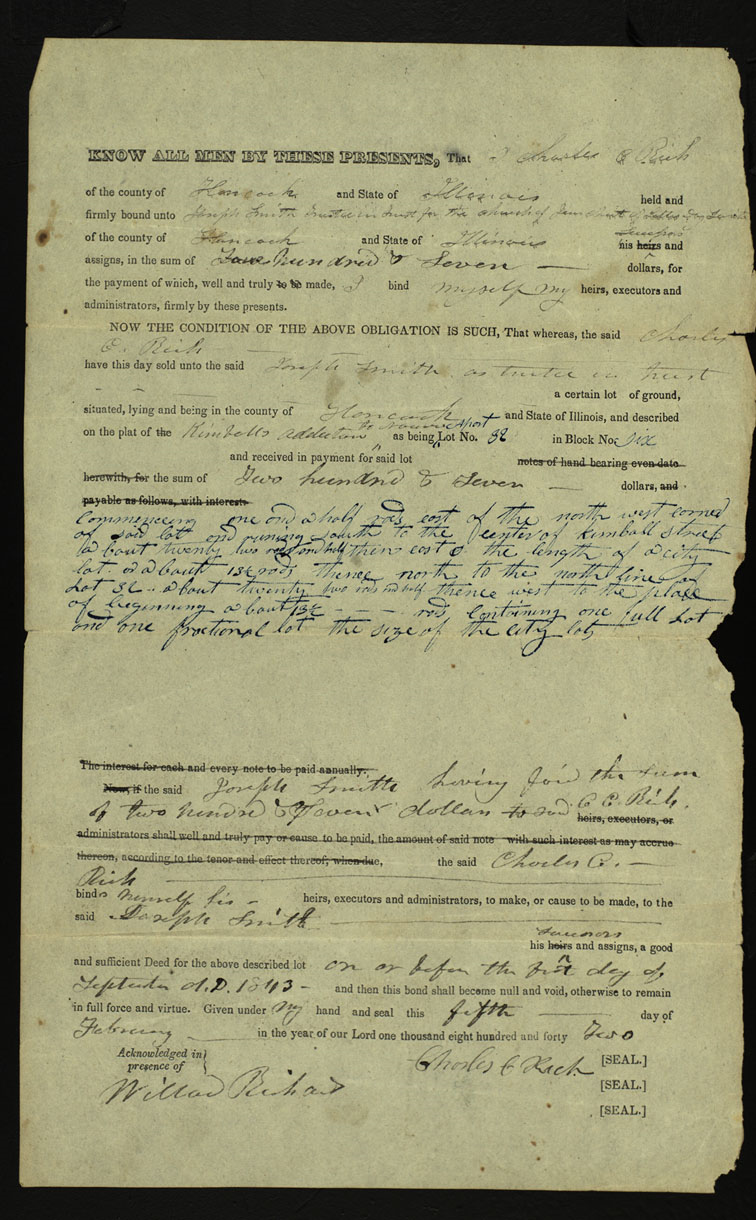 KNOW ALL MEN BY THESE PRESENTS, That I Charles C Rich
of the county of Hancock and State of Illinois held and
firmly bound unto Joseph Smith trustee in trust for the church of Jesus Christ of Latter Day Saints
successors
of the county of Hancock and State of Illinois his heirs and
assigns, in the sum of hundred & Seven — dollars, for
the payment of which, well and truly to be made, I bind myself my heirs, executors and
administrators, firmly by these presents.
NOW THE CONDITION OF THE ABOVE OBLIGATION IS SUCH, That whereas, the said Charles
C. Rich
have this day sold unto the said Joseph Smith as trustee in trust
a certain lot of ground,
situated, lying and being in the county of Hancock and State of Illinois, and described
to nauvoo a part
on the plat of the Kimbells addition as being Lot No. 32 in Block No. six
and received in payment for said lot notes of hand bearing even date
herewith, for the sum of Two hundred & Seven — dollars, and
payable as follows, with interest.
Commencing one and a half rods east of the north west corner
of said lot and runing south to the center of Kimball Street
about twenty two rods and half then east the length of a city
lot about rods thence north to the north line of
Lot 32 .. about twenty two rods and half thence west to the place
of beginning about - - - rods containing one full Lot
and one fractional lot the size of the city lots
The interest for each and every note to be paid annually.
Now, if the said Joseph Smith having paid the sum
of two hundred & Seven dollars to said C C. Rich. heirs, executors, or
administrators shall well and truly pay or cause to be paid, the amount of said note with such interest as may accrue
thereon, according to the tenor and effect thereof, when due, the said Charles C. —
Rich
binds himself his - heirs, executors and administrators, to make, or cause to be made, to the
said Joseph Smith
successors
his heirs and assigns, a good
and sufficient Deed for the above described lot on or before the first day of
September A.D. 1843 - and then this bond shall become null and void, otherwise to remain
in full force and virtue. Given under my hand and seal this fifth — day of
February — in the year of our Lord one thousand eight hundred and forty Two
Acknowledged in
presence of
Charles C Rich [SEAL.]
Willard Richards [SEAL.]
[SEAL.]